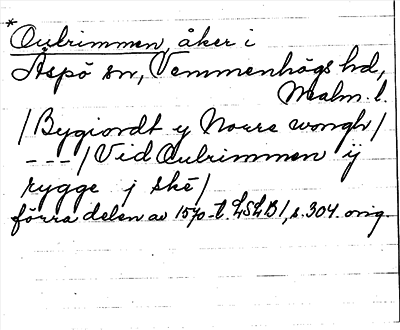 * Oulrimmen, åker i
Äspö sn, Vemmenhögs hd,
Malm. l.
/Bygiordt y Norre wongh/
---/Vid Oulrimmen ij
rygge j ské/
förra delen av 15/0-t. LSLB1, s. 304. orig.